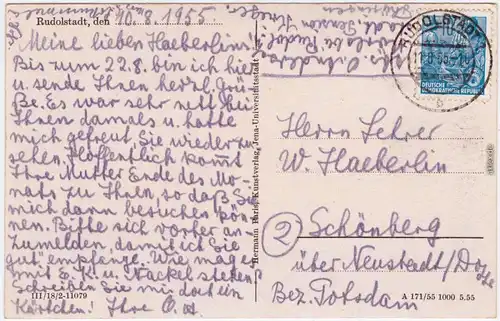 Rudolstadt, den 10.8.1955
Meine lieben Haeberlins!
Bis zum 22.8. bin ich hier
u. sende Ihnen herzl. Grü-
ße. Es war sehr nett bei
Ihnen damals u. hatte
mich gefreut Sie wieder zu
sehen. Hoffentlich kommt
Ihre Mutter Ende des Mo-
nats zu Ihnen, so daß Sie
mich dann besuchen kön-
nen. Bitte sich vorher an-
zumelden, damit ich Sie
gut empfange. Wie mag es
mit E. K. u. Nackel stehen?
Schreiben Sie mir doch ein
Kärtchen! Ihre O.
III/18/2-11079
Hermann Paris, Kunstverlag, Jena-Universitätsstadt
RUDOLSTADT
DEUTSCHE
DEMOKRATISCHE REPUBLIK
b
Herrn Lehrer
W. Haeberlin
2 Schönberg
über Neustadt/Dosse
Bez. Potsdam
A 171/55 1000 5.55